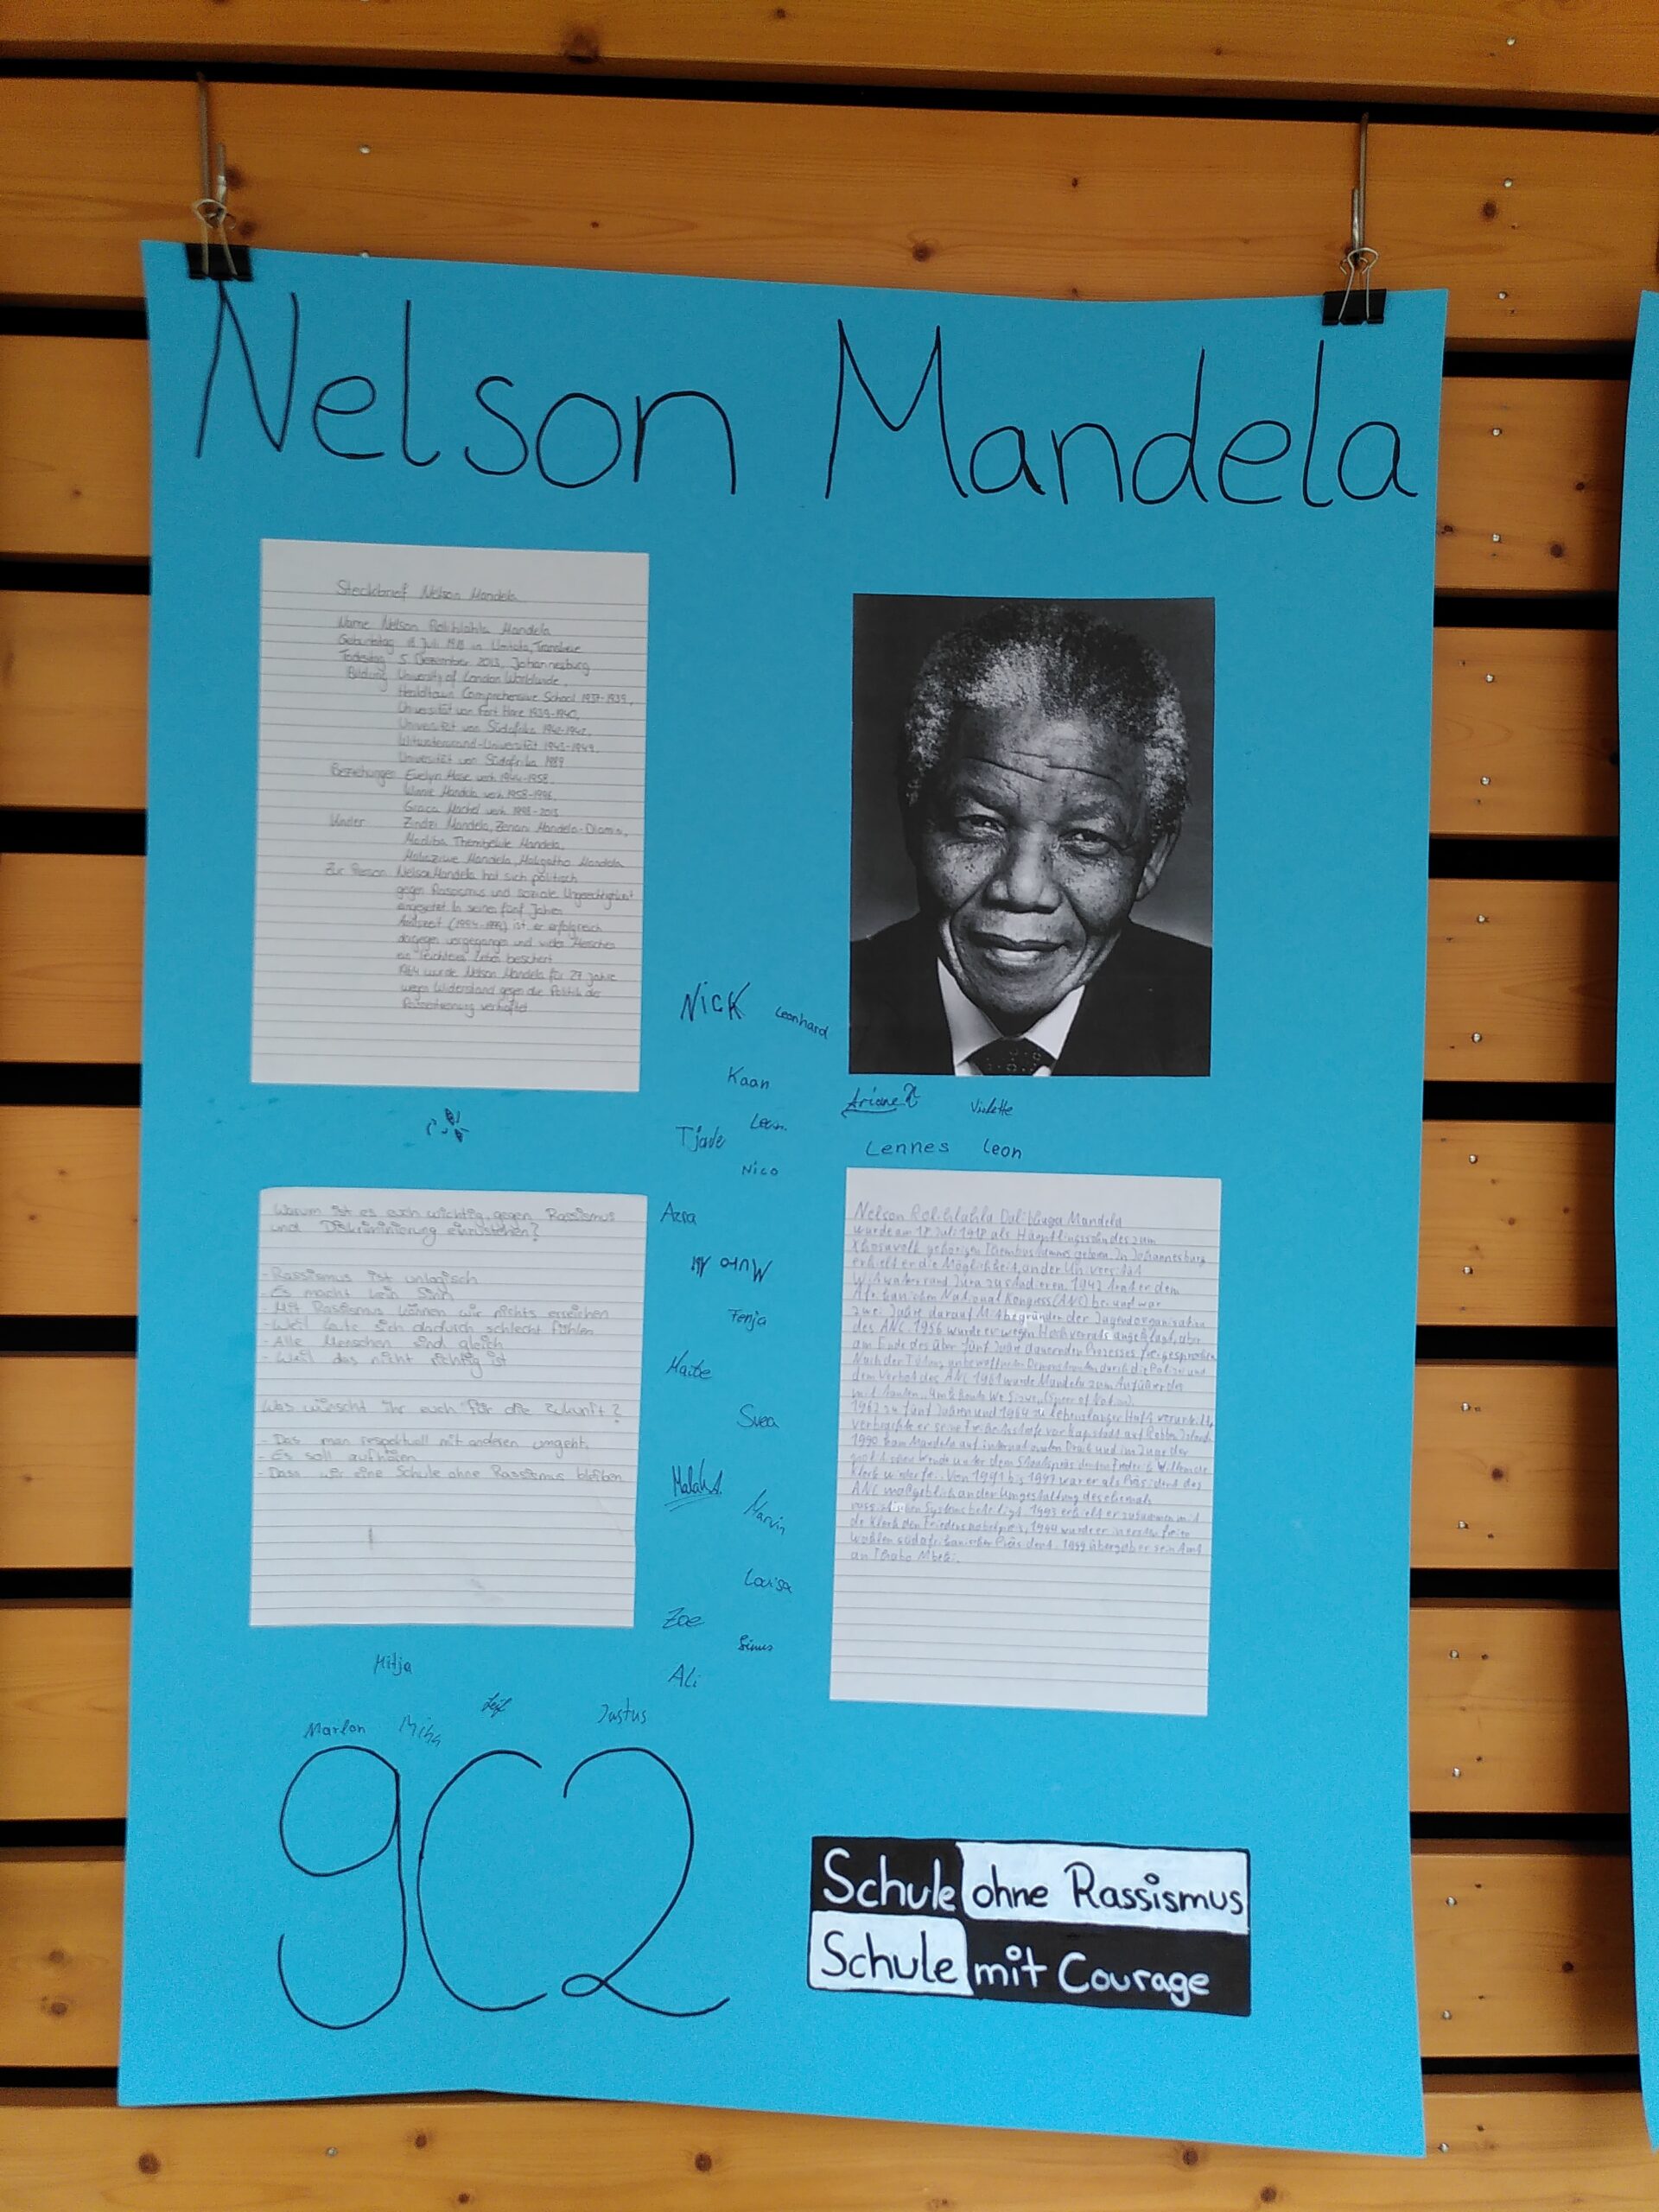 Nelson Mandela
Steckbrief Nelson Mandela
Name Nelson Rolihlahla Mandela
Geburtstag 18 Juli 1918 in Transkei
Todestag 5 Dezember 2013, Johannesburg
Bildung University of London Worldwide,
Healdtown Comprehensive School 1937-1939,
Universität von Fort Hare 1939-1940,
Universität von Südafrika
Witwatersrand-Universität 1943-1949,
Universität von Südafrika 1989
Beziehungen Evelyn Mase verh. 1944-1958
Winnie Mandela verh. 1958-1996,
Graca Machel verh. 1998-2013
Kinder Zindzi Mandela, Zenani Mandela-Dlamini,
Madiba Thembekile Mandela,
Makaziwe Mandela, Makgatho Mandela
Zur Person Nelson Mandela hat sich politisch
gegen Rassismus und soziale Ungerechtigkeit
eingesetzt In seiner fünf Jahre
Amtszeit (1994-1999) ist er erfolgreich
dagegen vorgegangen und vielen Menschen
ein leichteres Leben beschert
1964 wurde Nelson Mandela für 27 Jahre
wegen Widerstand gegen die Politik der
Rassentrennung verhaftet
Nick Leonhard
Kaan
Ariane Violette
Tjade Leon
Lennes Leon
Nico
Warum ist es euch wichtig, gegen Rassismus
und Diskriminierung einzustehen?
- Rassismus ist unlogisch
- Es macht kein Sinn
- Mit Rassismus können wir nichts erreichen
- Weil Leute sich dadurch schlecht fühlen
- Alle Menschen sind gleich
- Weil das nicht richtig ist
Was wünscht ihr euch für die Zukunft?
- Das man respektvoll mit anderen umgeht.
- Es soll aufhören
- Dass wir eine Schule ohne Rassismus bleiben
Azra
Fenja
Maibe
Svea
Malak A.
Marvin
Louisa
Zoe
Ali
Nelson Rolihlahla Dalibhunga Mandela
wurde am 18 Juli 1918 als Häuptlingssohn des zum
Xhosavolk gehörigen Thembustammes geboren. In Johannesburg
erhielt er die Möglichkeit, an der Universität
Witwatersrand Jura zu studieren. 1942 trat er dem
Afrikanischen National Kongress (ANC) bei und war
zwei Jahre darauf Mitbegründer der Jugendorganisation
des ANC. 1956 wurde er wegen Hochverrats angeklagt, aber
am Ende des über fünf Jahre dauernden Prozesses freigesprochen
Nach der Tötung unbewaffneter Demonstranten durch die Polizei und
dem Verbot des ANC 1961 wurde Mandela zum Anführer des
militanten Umkhonto We Sizwe (Speer of Nation).
1962 zu fünf Jahren und 1964 zu lebenslanger Haft verurteilt,
verbrachte er seine Freiheitsstrafe vor Kapstadt auf Robben Island
1990 kam Mandela auf internationalen Druck und im Zuge der
politischen Wende unter dem Staatspräsidenten Frederik Willem de
Klerk wieder frei. Von 1991 bis 1997 war er als Präsident des
ANC maßgeblich an der Umgestaltung des ehemals
rassistischen Systems beteiligt. 1993 erhielt er zusammen mit
de Klerk den Friedensnobelpreis, 1994 wurde er in ersten freien
Wahlen südafrikanischer Präsident. 1999 übergab er sein Amt
an Thabo Mbeki.
Mitja
Marlon Leif Justus
9C2
Schule ohne Rassismus
Schule mit Courage